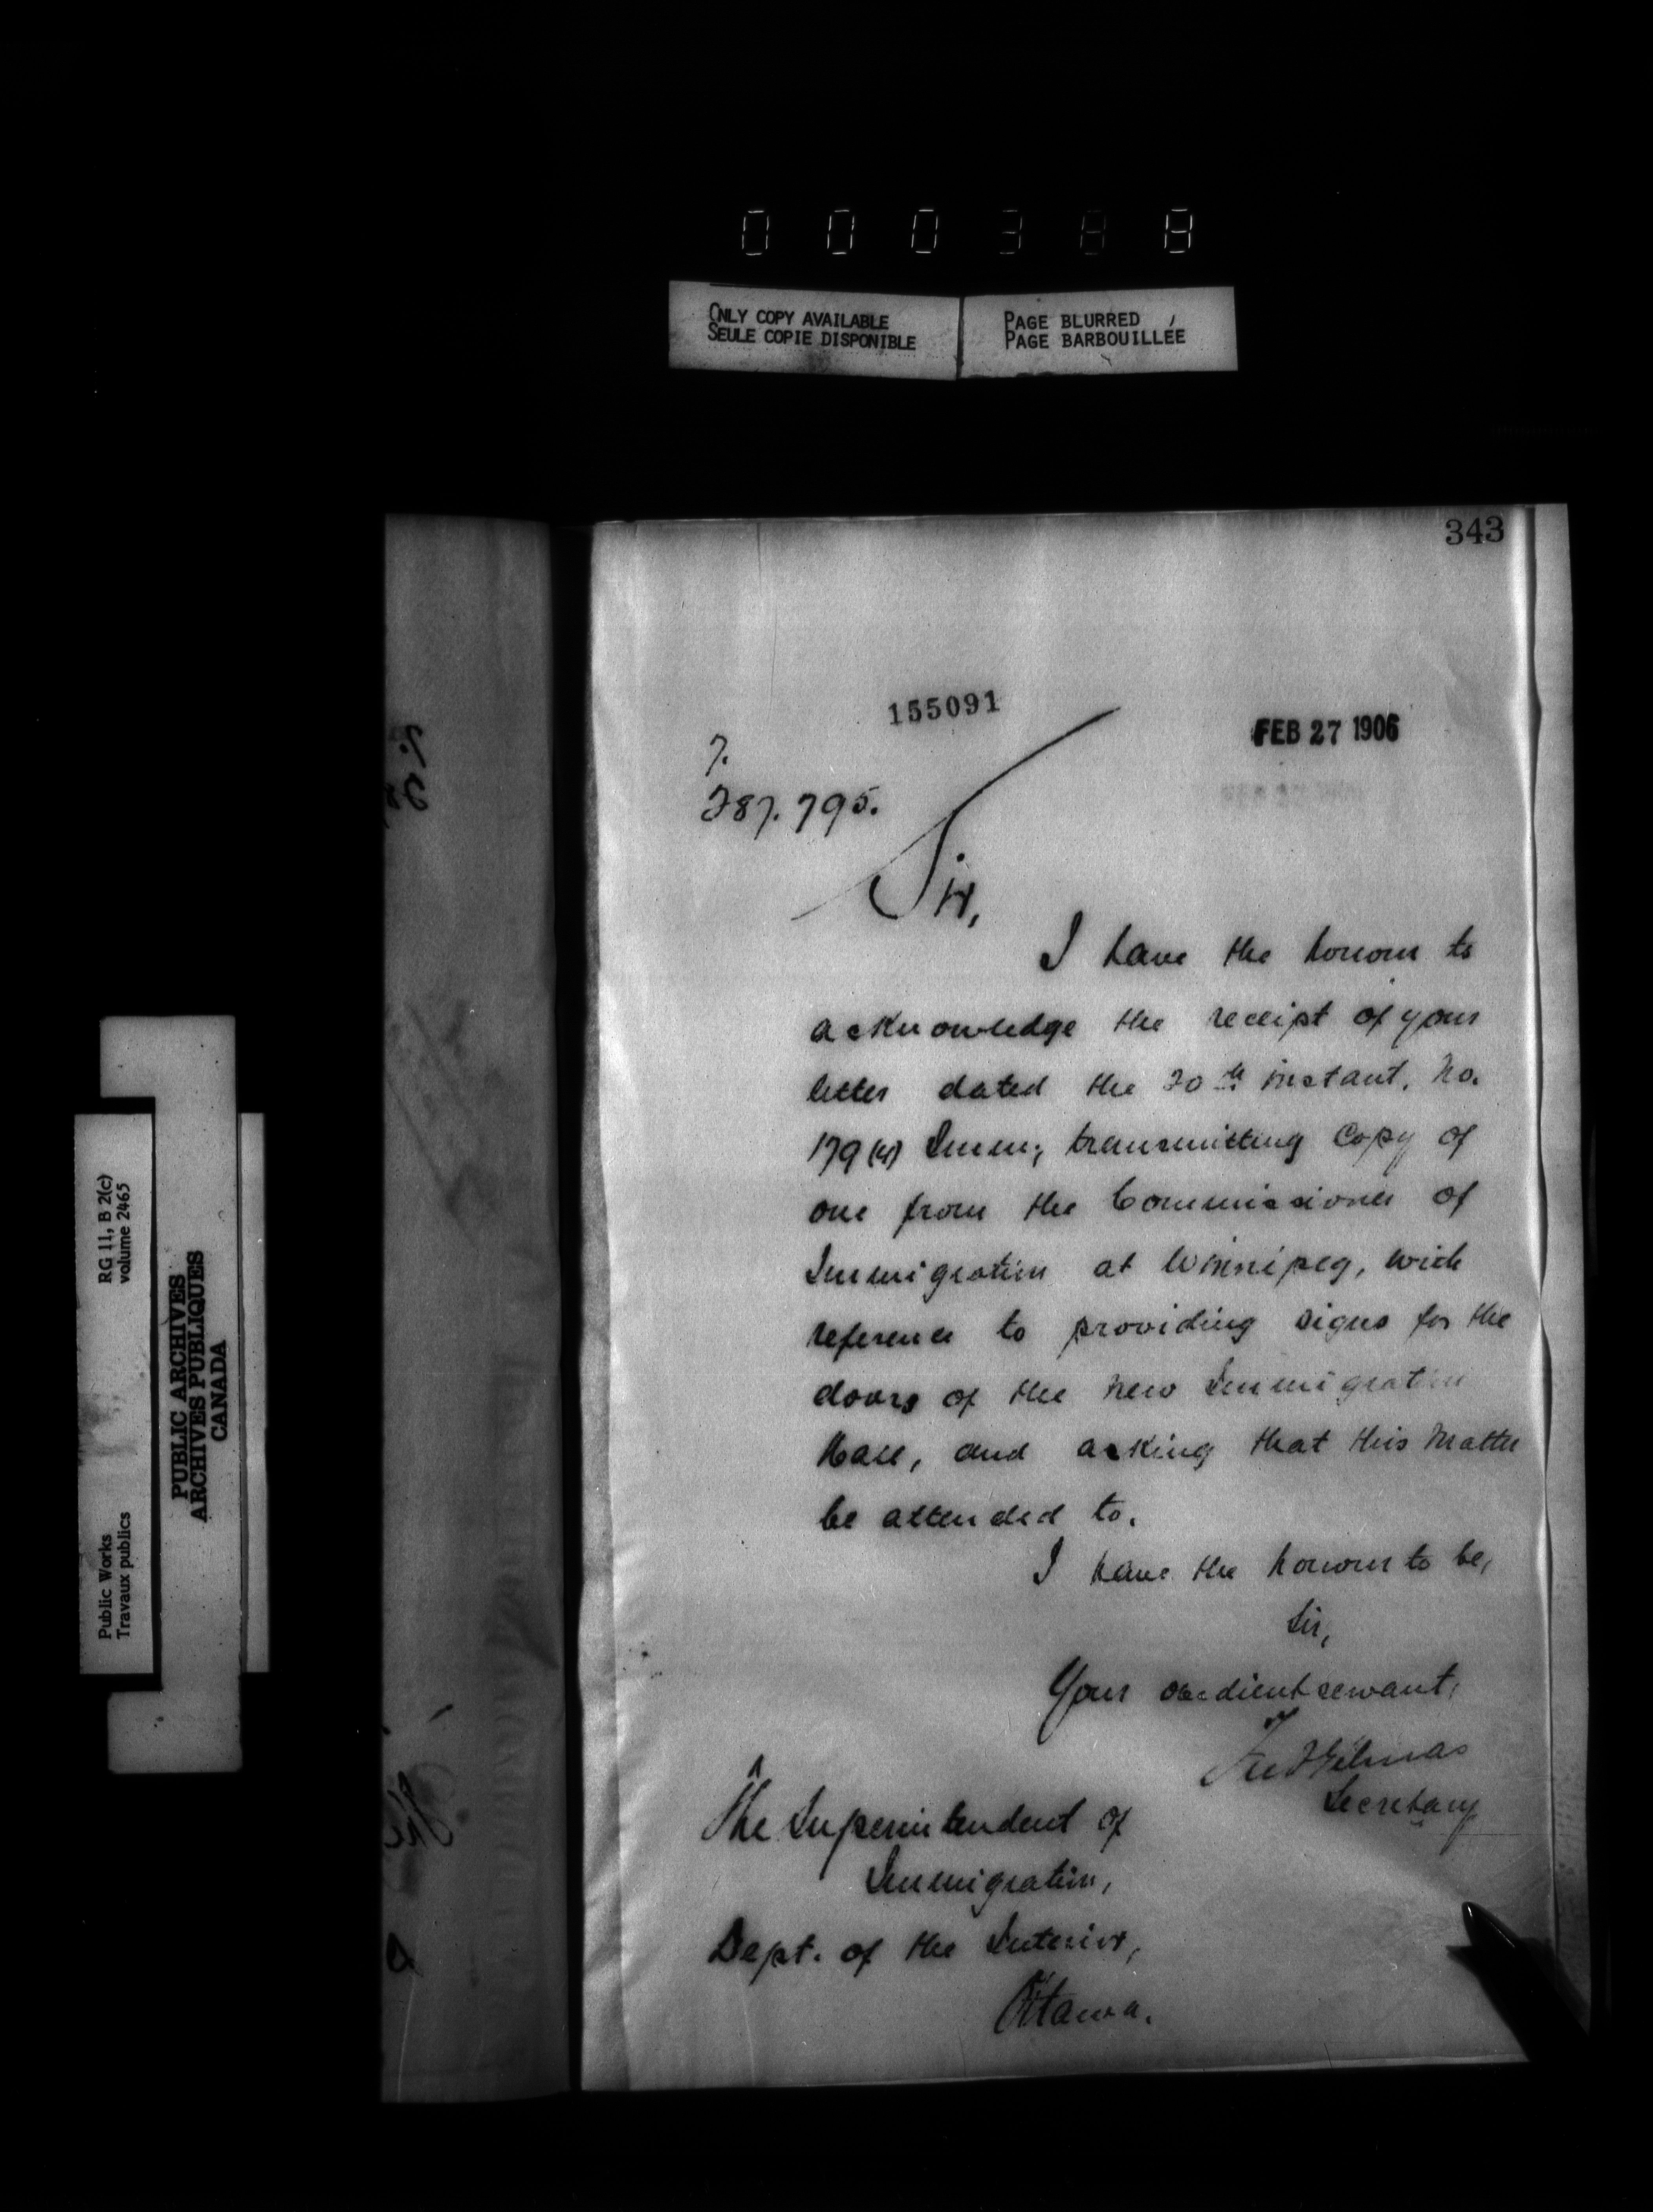 000388
ONLY COPY AVAILABLE
SEULE COPIE DISPONIBLE
PAGE BLURRED
PAGE BARBOUILLÉE
RG 11, B 2(c)
volume 2465
Public Works
Travaux publics
PUBLIC ARCHIVES
ARCHIVES PUBLIQUES
CANADA
343
155091
FEB 27 1906
7.
287.795.
Sir,
I have the honour to
acknowledge the receipt of your
letter dated the 20th instant, No.
179(4) Imm; transmitting Copy of
one from the Commissioner of
Immigration at Winnipeg, with
reference to providing signs for the
doors of the new Immigration
Hall, and asking that this matter
be attended to.
I have the honour to be,
Sir,
Your obedient servant,
Fred Gelinas
Secretary
The Superintendent of
Immigration,
Dept. of the Interior,
Ottawa.